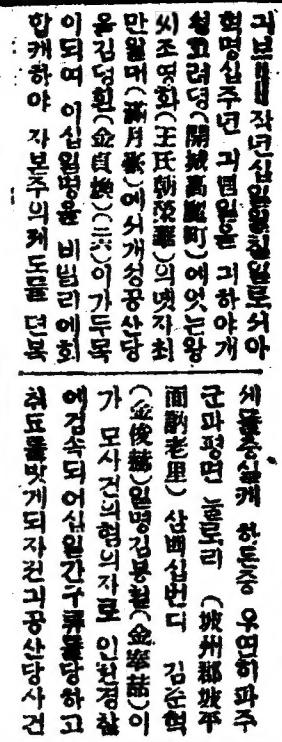 긔보 작년십일월칠일로서아
혁명십주년 긔념일을 긔하야개
성고려뎡(開城高麗町)에잇는왕
씨조영화(王氏朝榮華)의녯자최
만월대(滿月臺)에서개성공산당
을김뎡환(金貞煥)(二六)이가두목
이되여 이십일명을 비밀리에회
합캐하야 자본주의제도를 뎐복
세를충실캐 하든중 우연히파주
군파평면 눌로리 (坡州郡坡平
面訥老里) 삼백십번디 김준혁
(金俊赫)일명김봉철(金奉喆)이
가 모사건의혐의자로 인천경찰
에검속되어십일간구류를당하고
취됴를밧게되자전긔공산당사건